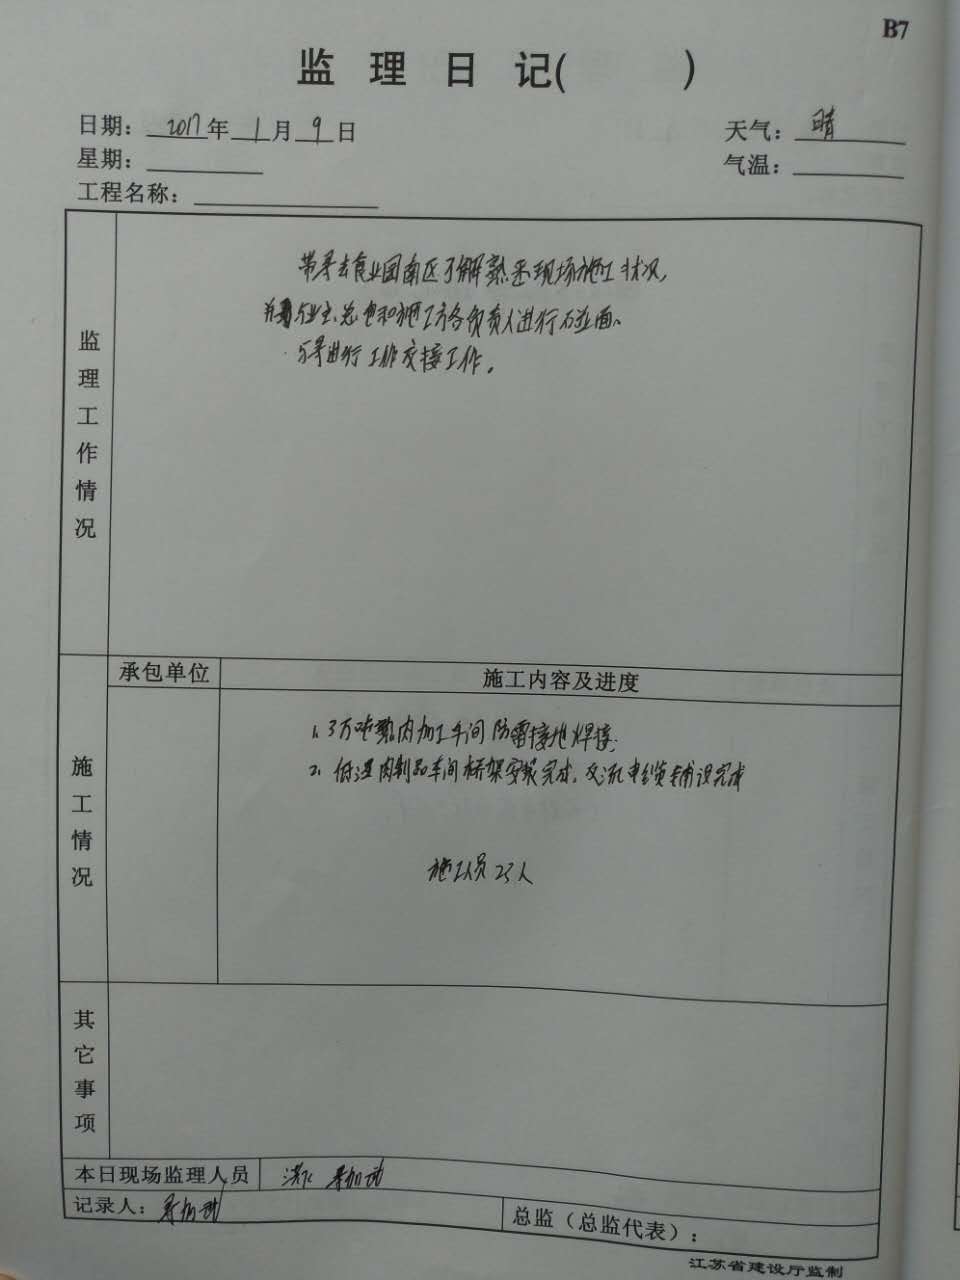 B7
监理日记(　　　)
日期：2017年1月9日
天气：晴
星期：
气温：
工程名称：
监理工作情况
带 去食业园南区了解熟悉现场施工状况，
与业主、总包和施工方各负责人进行 面。
与 进行工作交接工作。
施工情况
承包单位
施工内容及进度
1. 3万吨熟肉加工车间防雷接地焊接；
2. 低温肉制品车间桥架安装完成，交流电缆铺设完成
施工人员23人
其它事项
本日现场监理人员
记录人：
总监（总监代表）：
江苏省建设厅监制